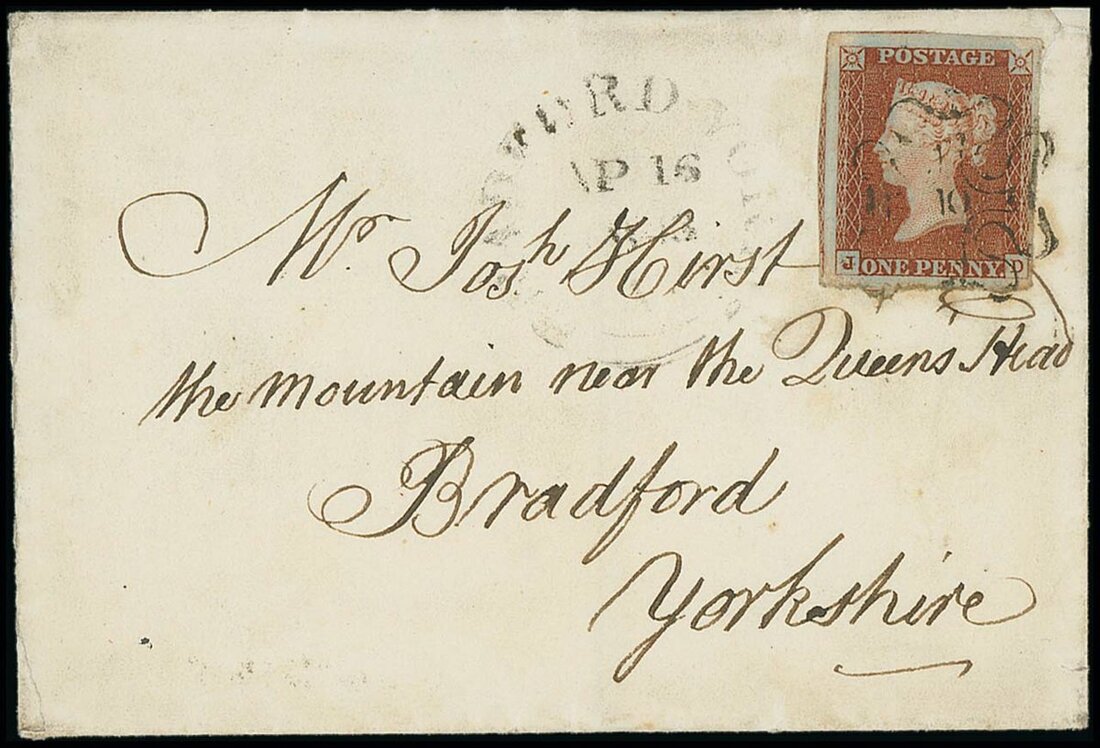 POSTAGE
AP 16
10
J ONE PENNY D
Mr Josh Hirst
the mountain near the Queens Head
Bradford
Yorkshire